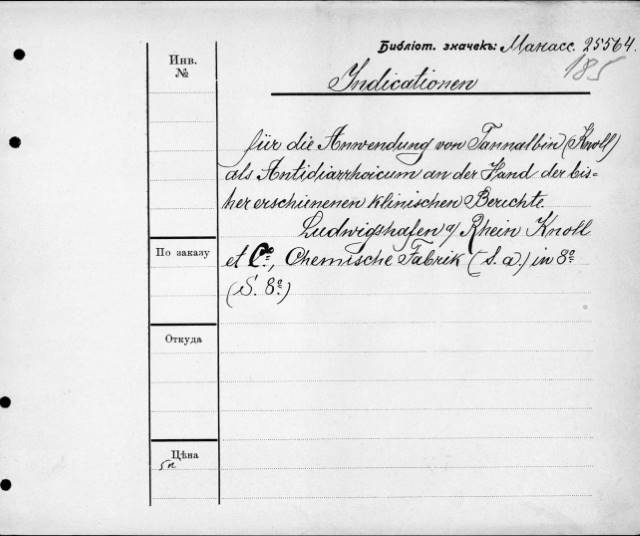 Библіот. значекъ: Манасс. 25564.
185
Инв.
№
Indicationen
für die Anwendung von Tannalbin (Knoll)
als Antidiarrhoicum an der Hand der bis-
her erschienenen klinischen Berichte.
Ludwigshafen a/ Rhein Knoll
et Co., Chemische Fabrik (S. a.) in 8º
(S. 8º)
По заказу
Откуда
Цѣна
5к